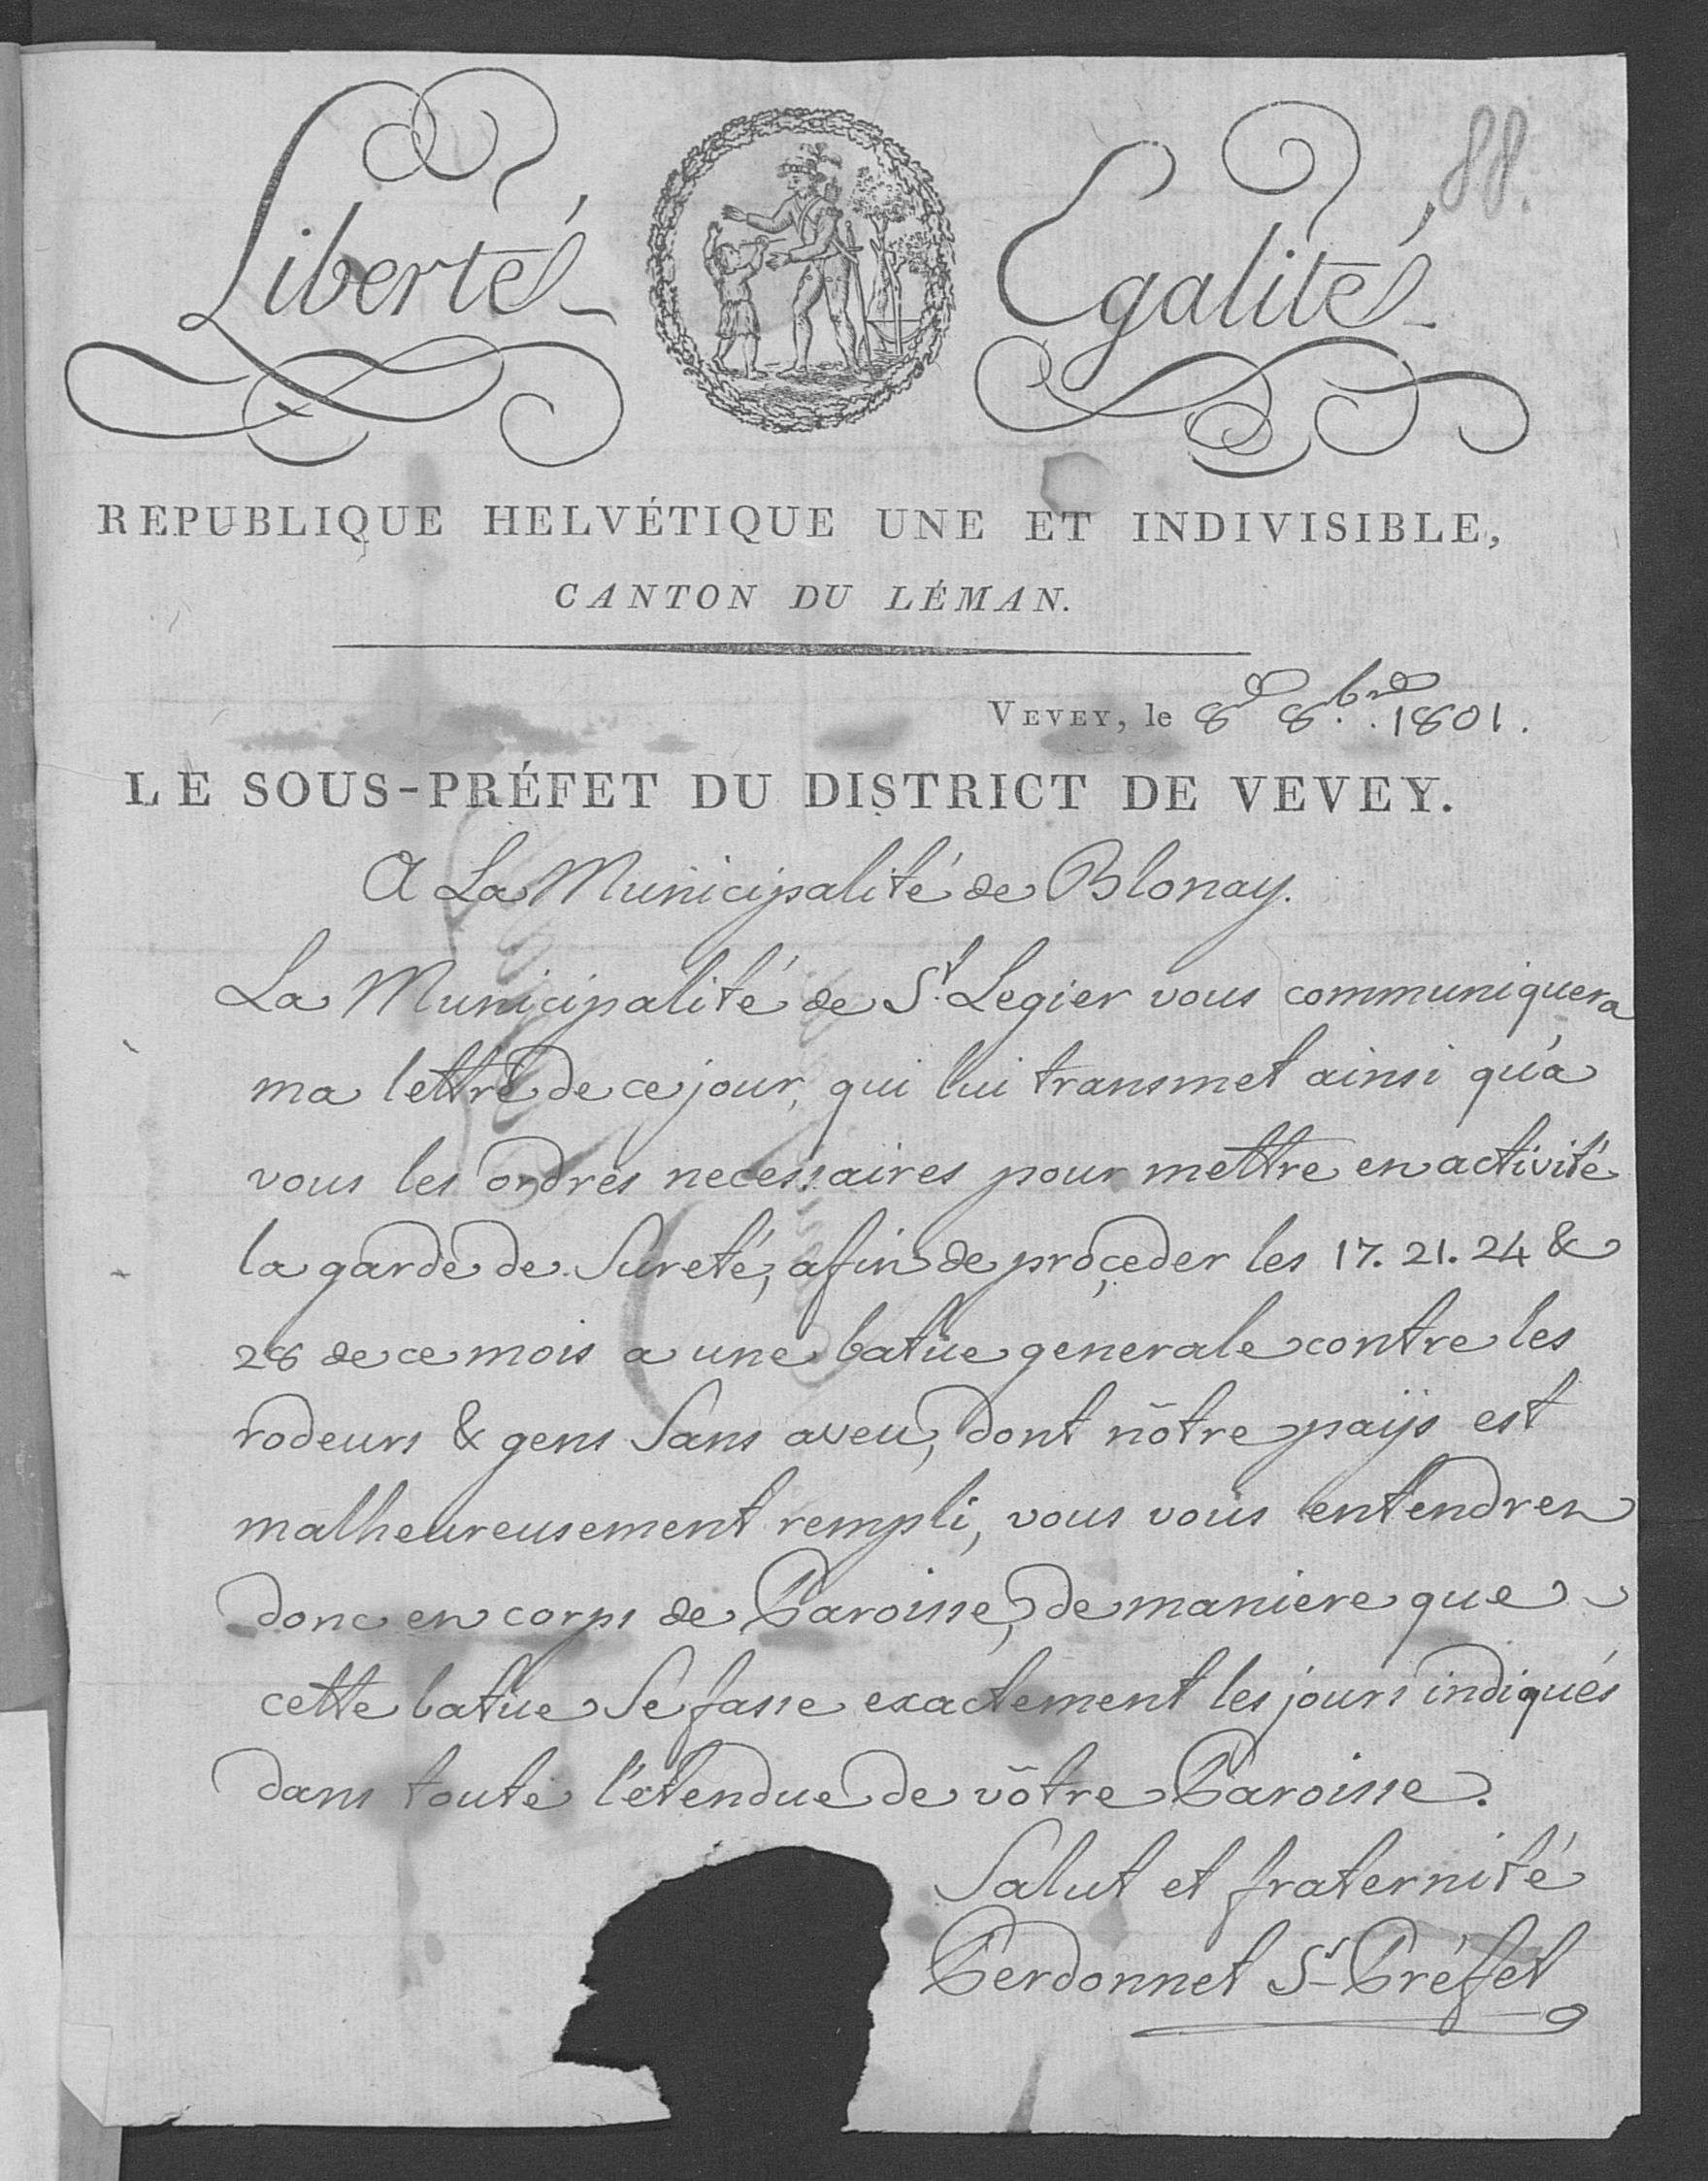 88.
Liberté
Egalité
REPUBLIQUE HELVÉTIQUE UNE ET INDIVISIBLE,
CANTON DU LÉMAN.
VEVEY, le 8e 8.bre 1801.
LE SOUS-PRÉFET DU DISTRICT DE VEVEY.
A La Municipalité de Blonay.
La Municipalité de St. Legier vous communiquera
ma lettre de ce jour, qui lui transmet ainsi qu'à
vous les ordres necessaires pour mettre en activité
la garde de Sureté, afin de proçeder les 17. 21. 24 &
28 de ce mois a une batüe generale contre les
rodeurs & gens Sans aveu, dont nôtre païs est
malheureusement rempli, vous vous entendrez
donc en corps de Paroisse, de maniere que
cette batüe Se fasse exactement les jours indiqués
dans toute l'étendue de vôtre Paroisse.
Salut et fraternité
Perdonnet Ss-Préfet